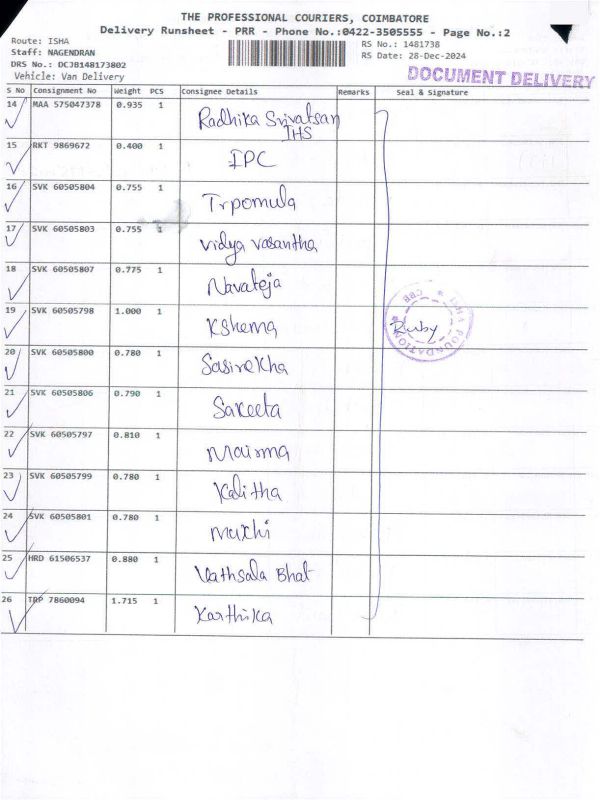 THE PROFESSIONAL COURIERS, COIMBATORE
Delivery Runsheet - PRR - Phone No.:0422-3505555 - Page No.:2
Route: ISHA
Staff: NAGENDRAN
DRS No.: DCJB148173802
Vehicle: Van Delivery
RS No.: 1481738
RS Date: 28-Dec-2024
DOCUMENT DELIVERY
S No Consignment No Weight PCS Consignee Details Remarks Seal & Signature
14 MAA 575047378 0.935 1 Radhika Srivatsan
IHS
15 RKT 9869672 0.400 1 IPC
16 SVK 60505804 0.755 1 Trpomula
17 SVK 60505803 0.755 1 Vidya Vasantha
18 SVK 60505807 0.775 1 Navateja
19 SVK 60505798 1.000 1 Kshema
20 SVK 60505800 0.780 1 Sasirekha
21 SVK 60505806 0.790 1 Sakeeta
22 SVK 60505797 0.810 1 Mairma
23 SVK 60505799 0.780 1 Kalitha
24 SVK 60505801 0.780 1
25 HRD 61506537 0.880 1 Vathsala Bhat
26 TRP 7860094 1.715 1 Karthika
ISHA FOUNDATION
CBB
Ruby